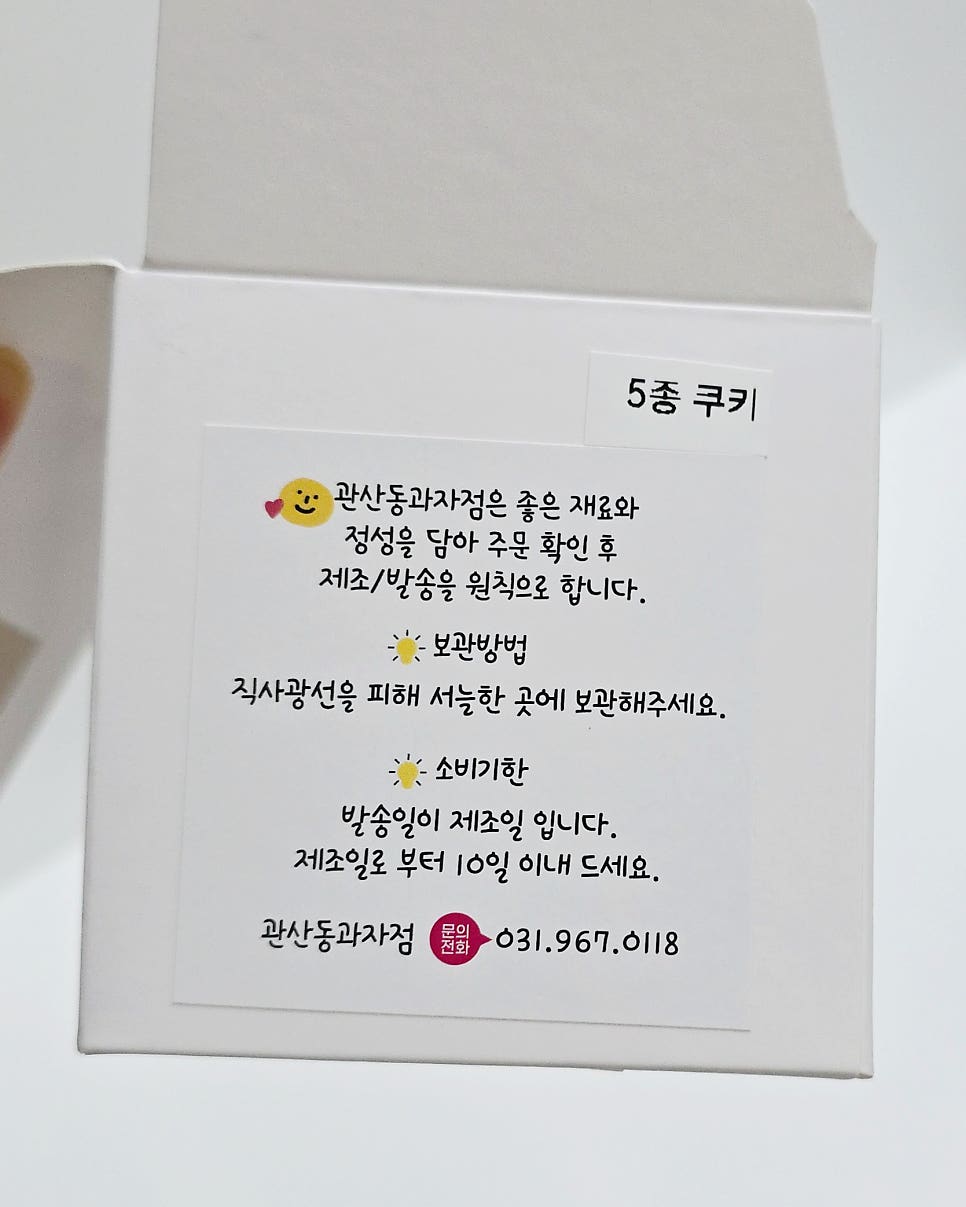 5종 쿠키
관산동과자점은 좋은 재료와
정성을 담아 주문 확인 후
제조/발송을 원칙으로 합니다.
보관방법
직사광선을 피해 서늘한 곳에 보관해주세요.
소비기한
발송일이 제조일 입니다.
제조일로 부터 10일 이내 드세요.
관산동과자점 문의전화 031.967.0118